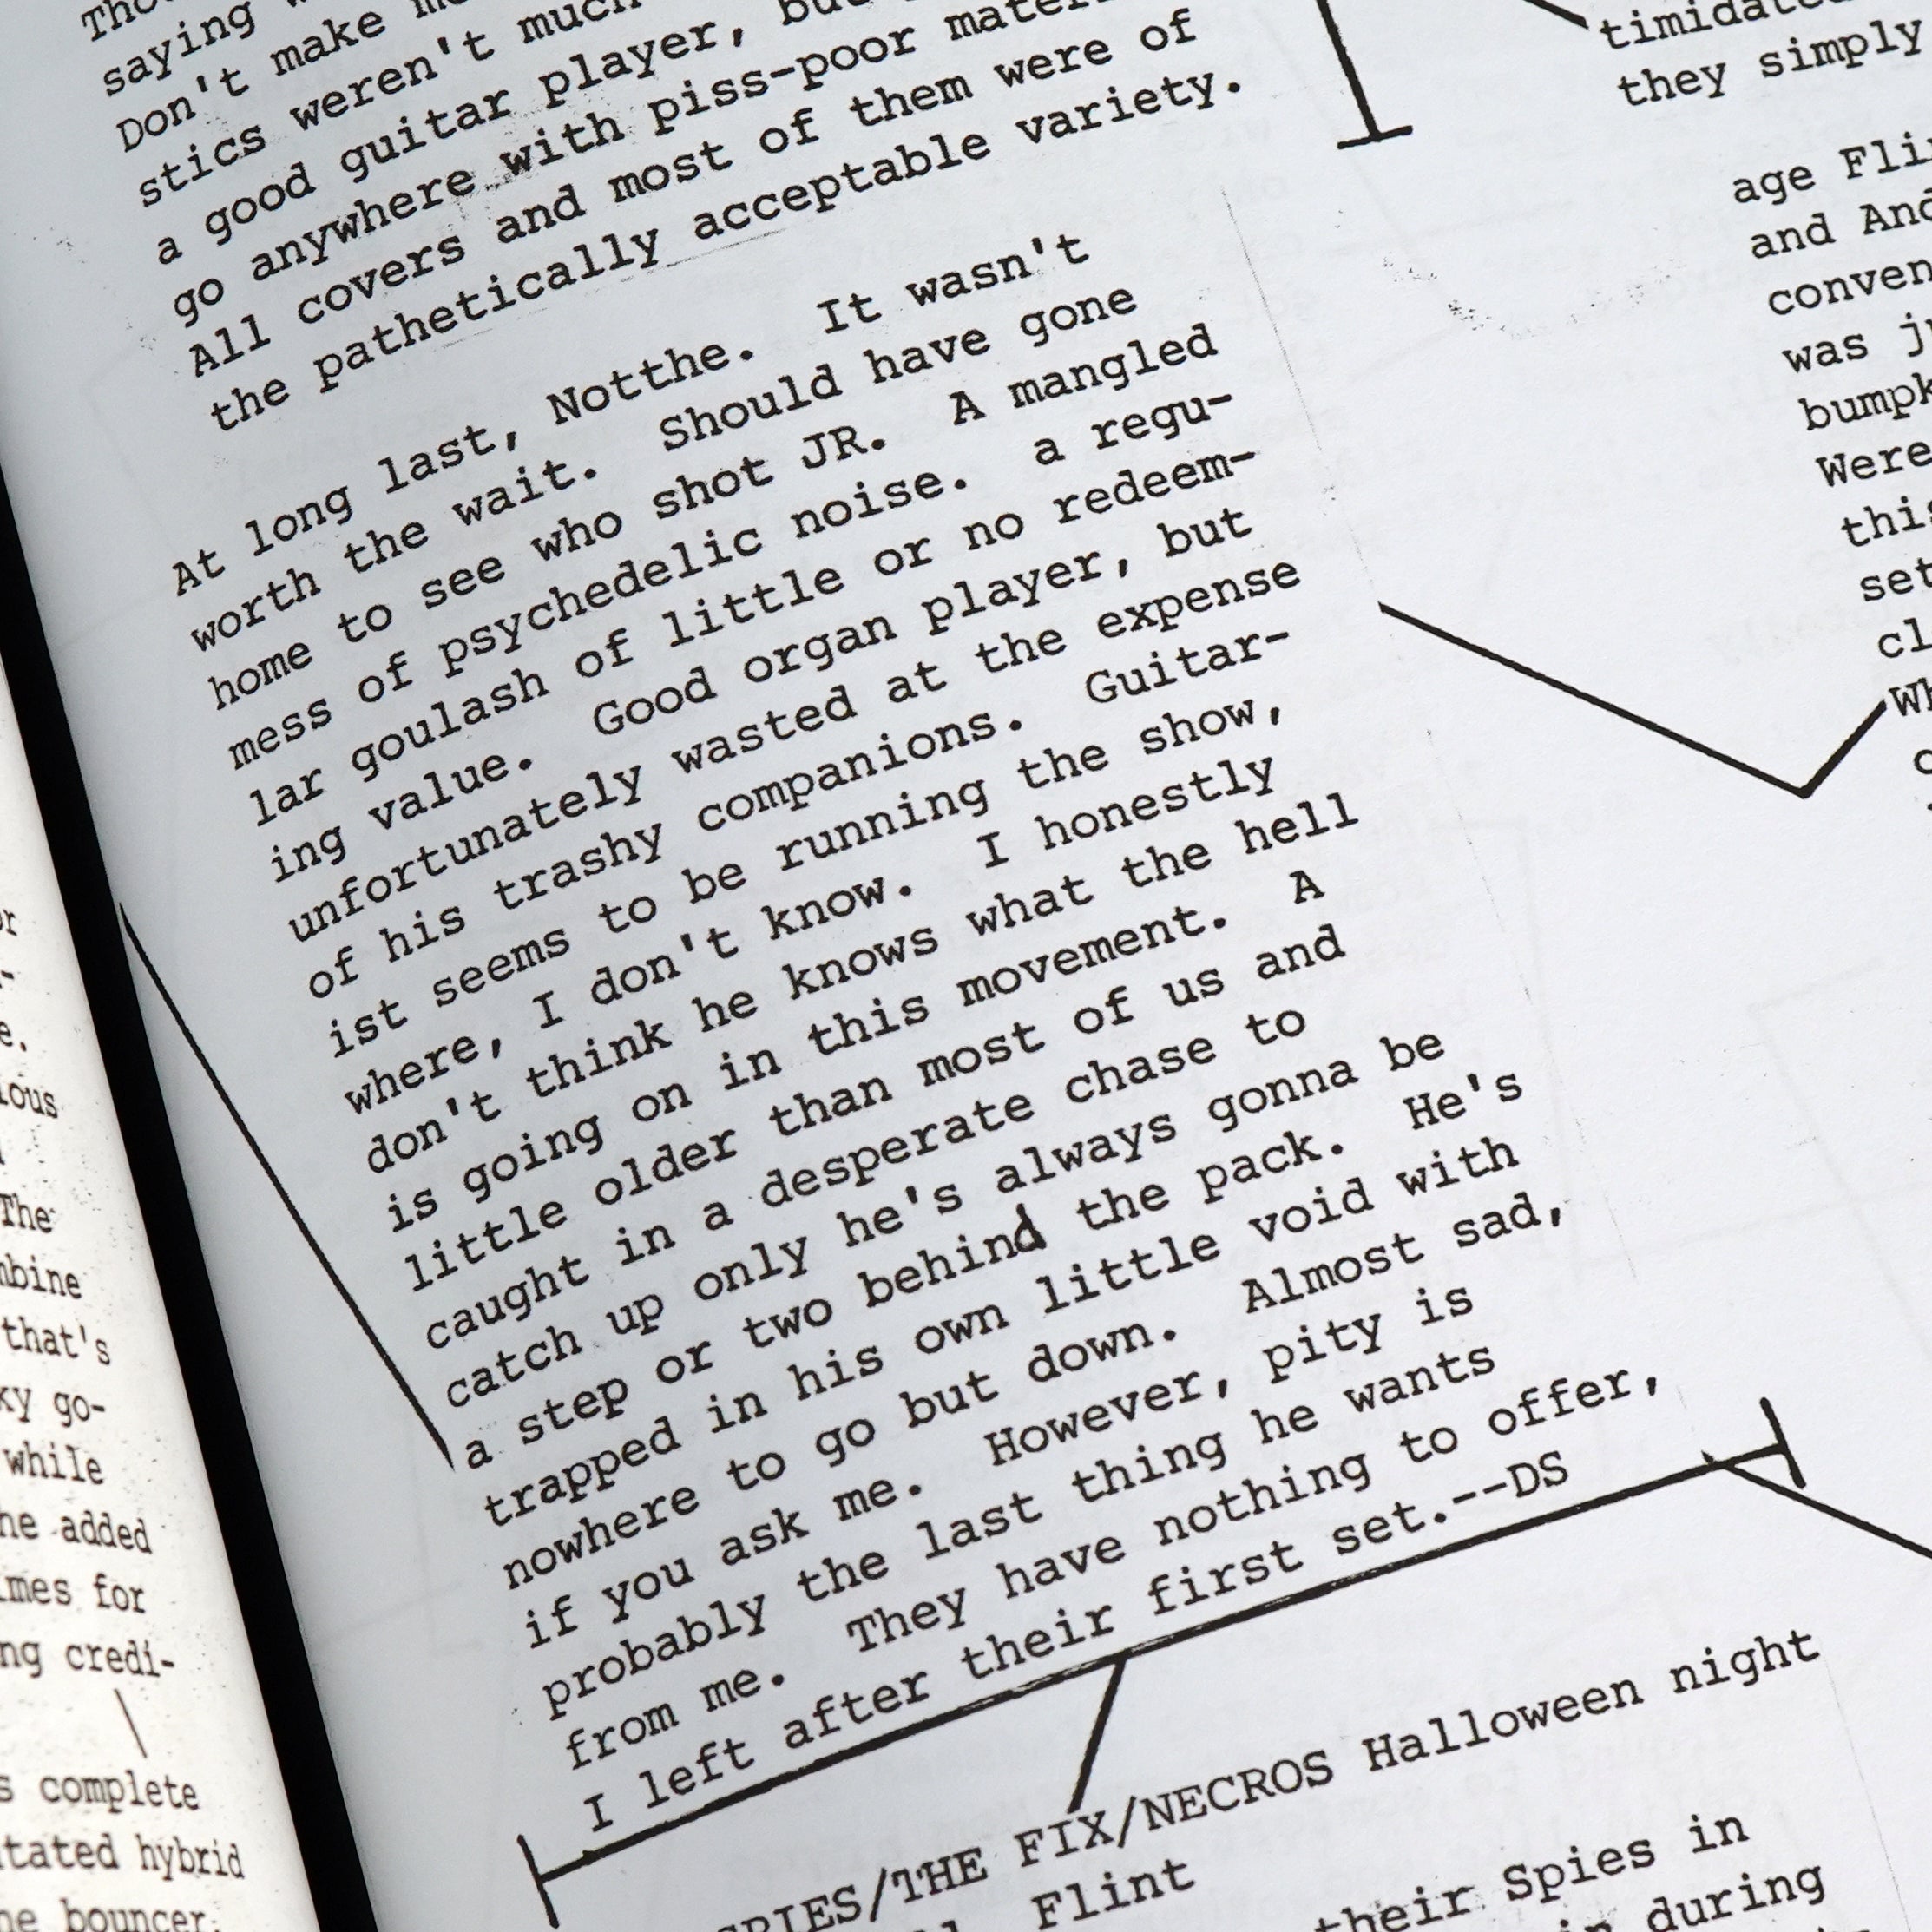 saying
Don't make
stics weren't much
a good guitar player,
go anywhere with piss-poor
All covers and most of them were of
the pathetically acceptable variety.
At long last, Notthe. It wasn't
worth the wait. Should have gone
home to see who shot JR. A mangled
mess of psychedelic noise. a regu-
lar goulash of little or no redeem-
ing value. Good organ player, but
unfortunately wasted at the expense
of his trashy companions. Guitar-
ist seems to be running the show,
where, I don't know. I honestly
don't think he knows what the hell
is going on in this movement. A
little older than most of us and
caught in a desperate chase to
catch up only he's always gonna be
a step or two behind the pack. He's
trapped in his own little void with
nowhere to go but down. Almost sad,
if you ask me. However, pity is
probably the last thing he wants
from me. They have nothing to offer,
I left after their first set.--DS
SPIES/THE FIX/NECROS Halloween night
Flint
their Spies in
during
they simply
age
and
was
Were
The
that's
go-
while
added
for
credi-
complete
hybrid
bouncer.